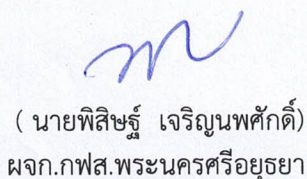 ( นายพิสิษฐ์ เจริญนพศักดิ์)
ผจก.กฟส.พระนครศรีอยุธยา